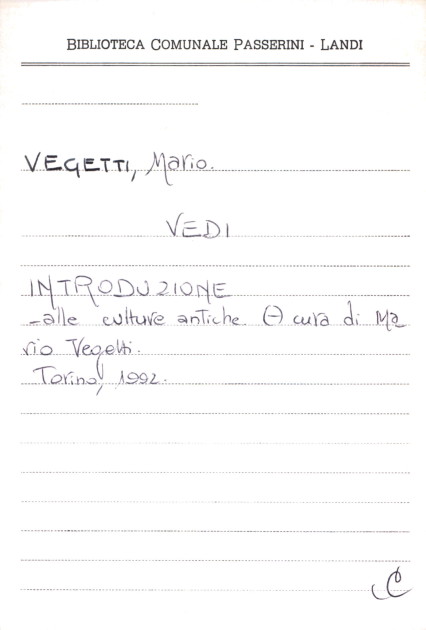 BIBLIOTECA COMUNALE PASSERINI - LANDI
VEGETTI, Mario.
VEDI
INTRODUZIONE
-alle culture antiche (-) cura di Ma
rio Vegetti.
Torino, 1992.